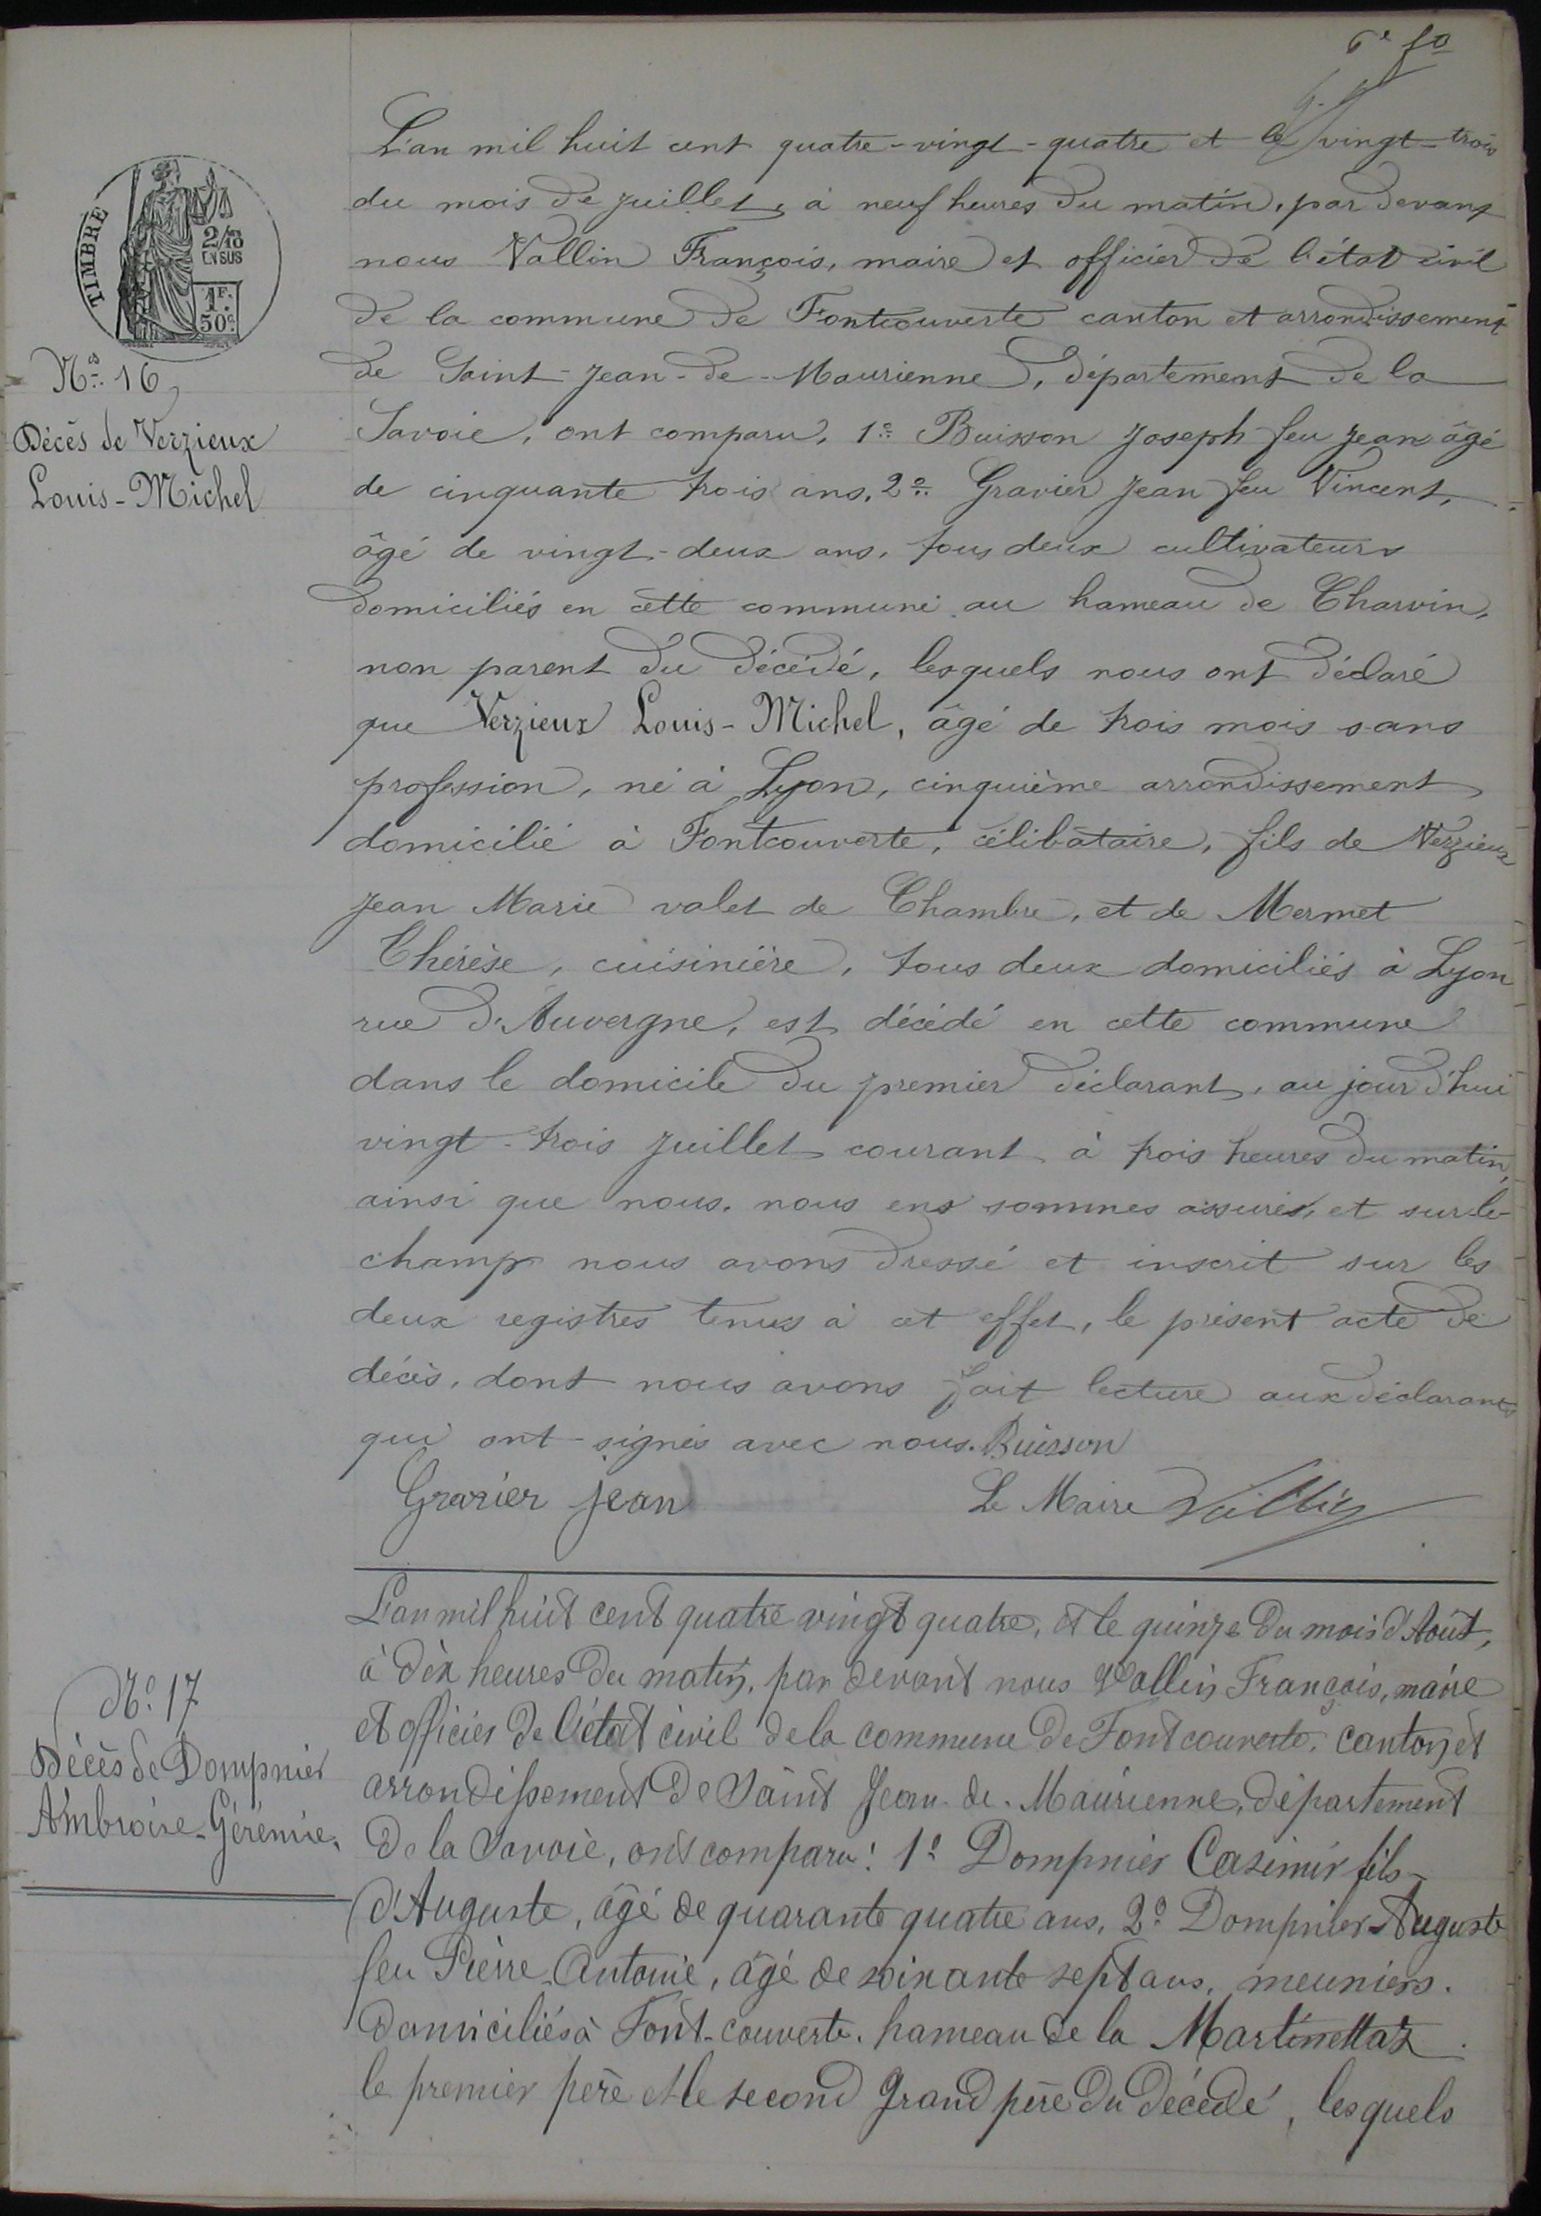 6e fo
L'an mil huit cent quatre-vingt-quatre et le vingt-trois
du mois de juillet, à neuf heures du matin, par devant
nous Vallin François, maire et officier de l'état civil
de la commune de Fontcouverte canton et arrondissement
de Saint-Jean-de-Maurienne, département de la
Savoie, ont comparu, 1o Buisson Joseph feu Jean âgé
de cinquante trois ans, 2o Gravier Jean feu Vincent,
âgé de vingt-deux ans, tous deux cultivateurs
domiciliés en cette commune au hameau de Charvin,
non parent du décédé, lesquels nous ont déclaré
que Verzieux Louis-Michel, âgé de trois mois sans
profession, né à Lyon, cinquième arrondissement
domicilié à Fontcouverte, célibataire, fils de Verzieux
Jean Marie valet de Chambre, et de Mermet
Thérèse, cuisinière, tous deux domiciliés à Lyon
rue d'Auvergne, est décédé en cette commune
dans le domicile du premier déclarant, aujourd'hui
vingt-trois juillet courant à trois heures du matin,
ainsi que nous, nous ens sommes assurés, et sur-le-
champ nous avons dressé et inscrit sur les
deux registres tenus à cet effet, le présent acte de
décès, dont nous avons fait lecture aux déclarants
qui ont signés avec nous. Buisson
Gravier Jean Le Maire Vallin
TIMBRE
2/10
EN SUS
1F.
50c.
No. 16
Décès de Verzieux
Louis-Michel
L'an mil huit cent quatre vingt quatre, et le quinze du mois d'Août,
à dix heures du matin, par devant nous Vallin François, maire
et officier de l'état civil de la commune de Fontcouverte, canton et
arrondissement de Saint Jean-de-Maurienne, département
de la Savoie, ont comparu: 1o Dompnier Casimir fils
d'Auguste, âgé de quarante quatre ans, 2o Dompnier Auguste
feu Pierre-Antoine, âgé de soixante sept ans, meuniers.
domiciliés à Font-couverte, hameau de la Martinettaz.
le premier père et le second grand père du décédé, lesquels
No. 17
Décès de Dompnier
Ambroise-Gérémie.